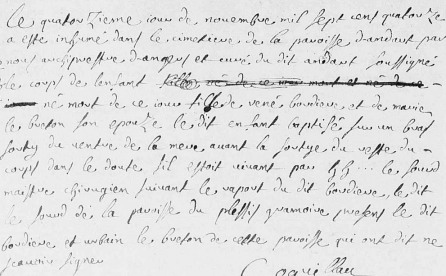 Le quatorzieme iour de novembre mil sept cent quatorze
a este inhumé dans le cimetiere de la paroisse d'andart par
nous archiprestre d'angers et curé du dit andart soussigné
le corps de lenfant né de ce iour mort et né
né mort de ce iour fils de rené boudiere et de marie
le breton son epouze le dit enfant baptisé sur un bras
sorty du ventre de la mere avant la sortye du reste du
corps dans le doute sil estoit vivant par le sourd
maistre chirugien suivant le raport du dit boudiere le dit
le sourd de la paroisse du plessis present le dit
boudiere et urbain le breton de cette paroisse qui ont dit ne
scavoir signer